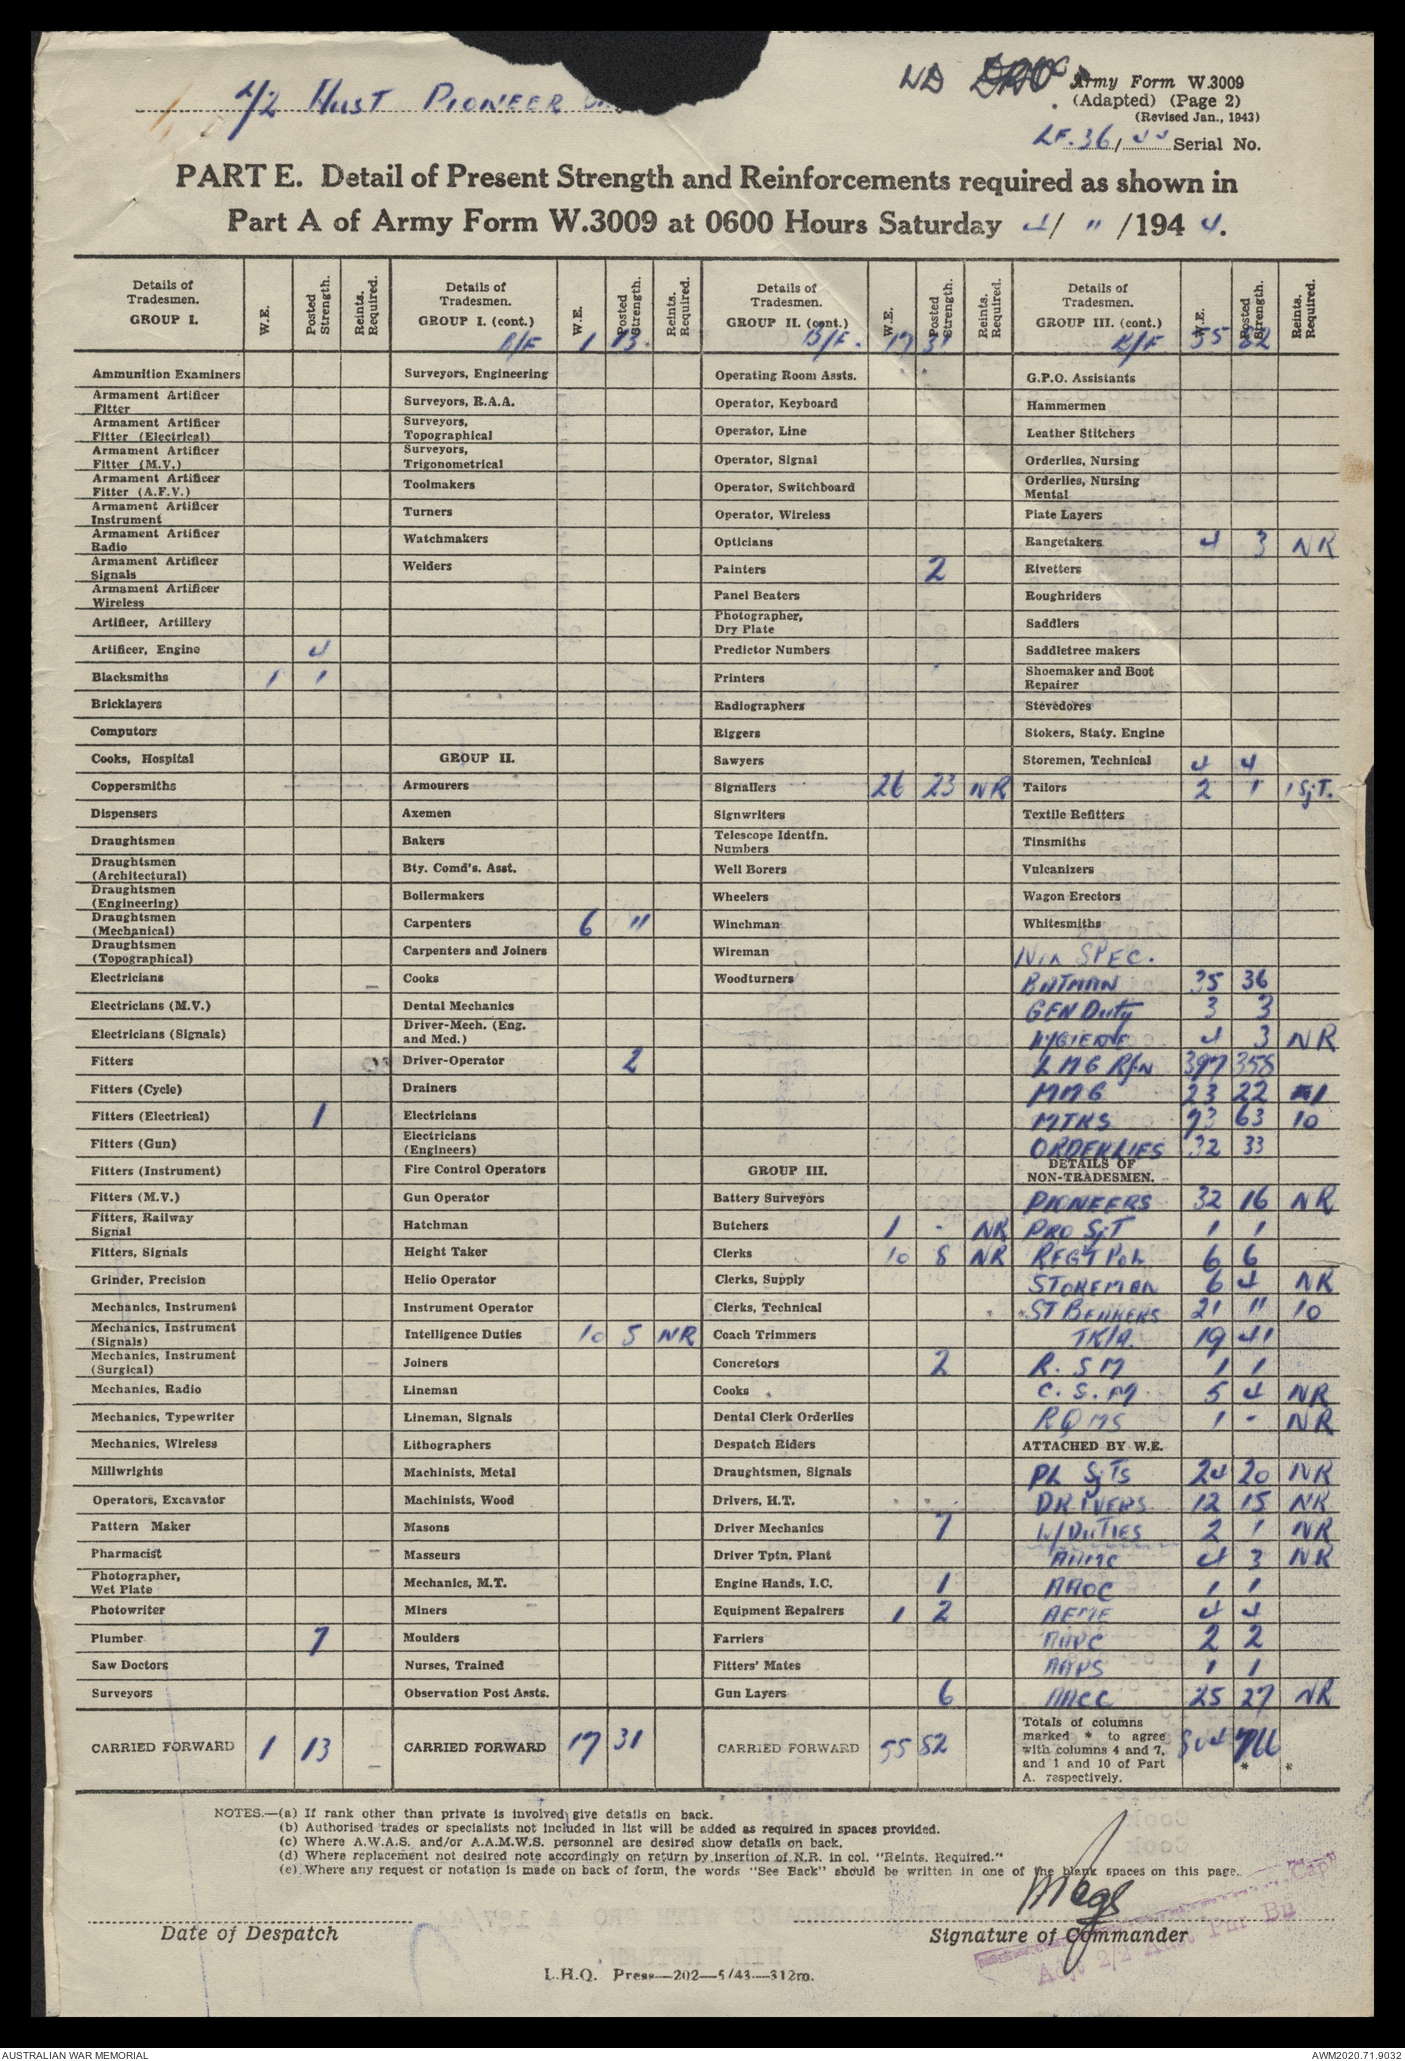 2/2 Aust Pioneer
Army Form W.3009
(Adapted) (Page 2)
(Revised Jan., 1943)
LF.36/44 Serial No.
PART E. Detail of Present Strength and Reinforcements required as shown in
Part A of Army Form W.3009 at 0600 Hours Saturday 4/ 11 /1944.
Details of Tradesmen. GROUP I. W.E. Posted Strength. Reints. Required. Details of Tradesmen. GROUP I. (cont.) W.E. Posted Strength. Reints. Required. Details of Tradesmen. GROUP II. (cont.) W.E. Posted Strength. Reints. Required. Details of Tradesmen. GROUP III. (cont.) W.E. Posted Strength. Reints. Required.
B/F 1 13. B/F. 17 31 B/F 55 52
Ammunition Examiners Surveyors, Engineering Operating Room Assts. G.P.O. Assistants
Armament Artificer Fitter Surveyors, R.A.A. Operator, Keyboard Hammermen
Armament Artificer Fitter (Electrical) Surveyors, Topographical Operator, Line Leather Stitchers
Armament Artificer Fitter (M.V.) Surveyors, Trigonometrical Operator, Signal Orderlies, Nursing
Armament Artificer Fitter (A.F.V.) Toolmakers Operator, Switchboard Orderlies, Nursing Mental
Armament Artificer Instrument Turners Operator, Wireless Plate Layers
Armament Artificer Radio Watchmakers Opticians Rangetakers 4 3 NR
Armament Artificer Signals Welders Painters 2 Rivetters
Armament Artificer Wireless Panel Beaters Roughriders
Artificer, Artillery Photographer, Dry Plate Saddlers
Artificer, Engine 4 Predictor Numbers Saddletree makers
Blacksmiths 1 1 Printers Shoemaker and Boot Repairer
Bricklayers Radiographers Stevedores
Computors Riggers Stokers, Staty. Engine
Cooks, Hospital GROUP II. Sawyers Storemen, Technical 4 4
Coppersmiths Armourers Signallers 26 23 NR Tailors 2 1 1 SjT.
Dispensers Axemen Signwriters Textile Refitters
Draughtsmen Bakers Telescope Identfn. Numbers Tinsmiths
Draughtsmen (Architectural) Bty. Comd's. Asst. Well Borers Vulcanizers
Draughtsmen (Engineering) Boilermakers Wheelers Wagon Erectors
Draughtsmen (Mechanical) Carpenters 6 11 Winchman Whitesmiths
Draughtsmen (Topographical) Carpenters and Joiners Wireman Non SPEC.
Electricians Cooks Woodturners BATMAN 35 36
Electricians (M.V.) Dental Mechanics GEN Duty 3 3
Electricians (Signals) Driver-Mech. (Eng. and Med.) HYGIENE 4 3 NR
Fitters Driver-Operator 2 LMG Rfn 397 358
Fitters (Cycle) Drainers MMG 23 22 1
Fitters (Electrical) 1 Electricians MTRS 73 63 10
Fitters (Gun) Electricians (Engineers) ORDERLIES 32 33
Fitters (Instrument) Fire Control Operators GROUP III. DETAILS OF NON-TRADESMEN.
Fitters (M.V.) Gun Operator Battery Surveyors PIONEERS 32 16 NR
Fitters, Railway Signal Hatchman Butchers 1 - NR PRO SjT 1 1
Fitters, Signals Height Taker Clerks 10 8 NR REGT Pol 6 6
Grinder, Precision Helio Operator Clerks, Supply STOREMAN 6 4 NR
Mechanics, Instrument Instrument Operator Clerks, Technical ST BEARERS 21 11 10
Mechanics, Instrument (Signals) Intelligence Duties 10 5 NR Coach Trimmers TK/A. 19 41
Mechanics, Instrument (Surgical) Joiners Concretors 2 R. S M 1 1
Mechanics, Radio Lineman Cooks C. S. M. 5 4 NR
Mechanics, Typewriter Lineman, Signals Dental Clerk Orderlies RQMS 1 - NR
Mechanics, Wireless Lithographers Despatch Riders ATTACHED BY W.E.
Millwrights Machinists, Metal Draughtsmen, Signals PL SjTS 24 20 NR
Operators, Excavator Machinists, Wood Drivers, H.T. DRIVERS 12 15 NR
Pattern Maker Masons Driver Mechanics 7 W/DUTIES 2 1 NR
Pharmacist Masseurs Driver Tptn. Plant AAMC 4 3 NR
Photographer, Wet Plate Mechanics, M.T. Engine Hands, I.C. 1 AAOC 1 1
Photowriter Miners Equipment Repairers 1 2 AEME 4 4
Plumber 7 Moulders Farriers AAPC 2 2
Saw Doctors Nurses, Trained Fitters' Mates AAPS 1 1
Surveyors Observation Post Assts. Gun Layers 6 AACC 25 27 NR
CARRIED FORWARD 1 13 CARRIED FORWARD 17 31 CARRIED FORWARD 55 52 Totals of columns marked * to agree with columns 4 and 7, and 1 and 10 of Part A. respectively. 804 766 * *
NOTES.—(a) If rank other than private is involved give details on back.
(b) Authorised trades or specialists not included in list will be added as required in spaces provided.
(c) Where A.W.A.S. and/or A.A.M.W.S. personnel are desired show details on back.
(d) Where replacement not desired note accordingly on return by insertion of N.R. in col. "Reints. Required."
(e) Where any request or notation is made on back of form, the words "See Back" should be written in one of the blank spaces on this page.
Capt
Date of Despatch Signature of Commander
Adjt 2/2 Aust Pnr Bn
L.H.Q. Press—202—5/43—312m.
AUSTRALIAN WAR MEMORIAL AWM2020.71.9032